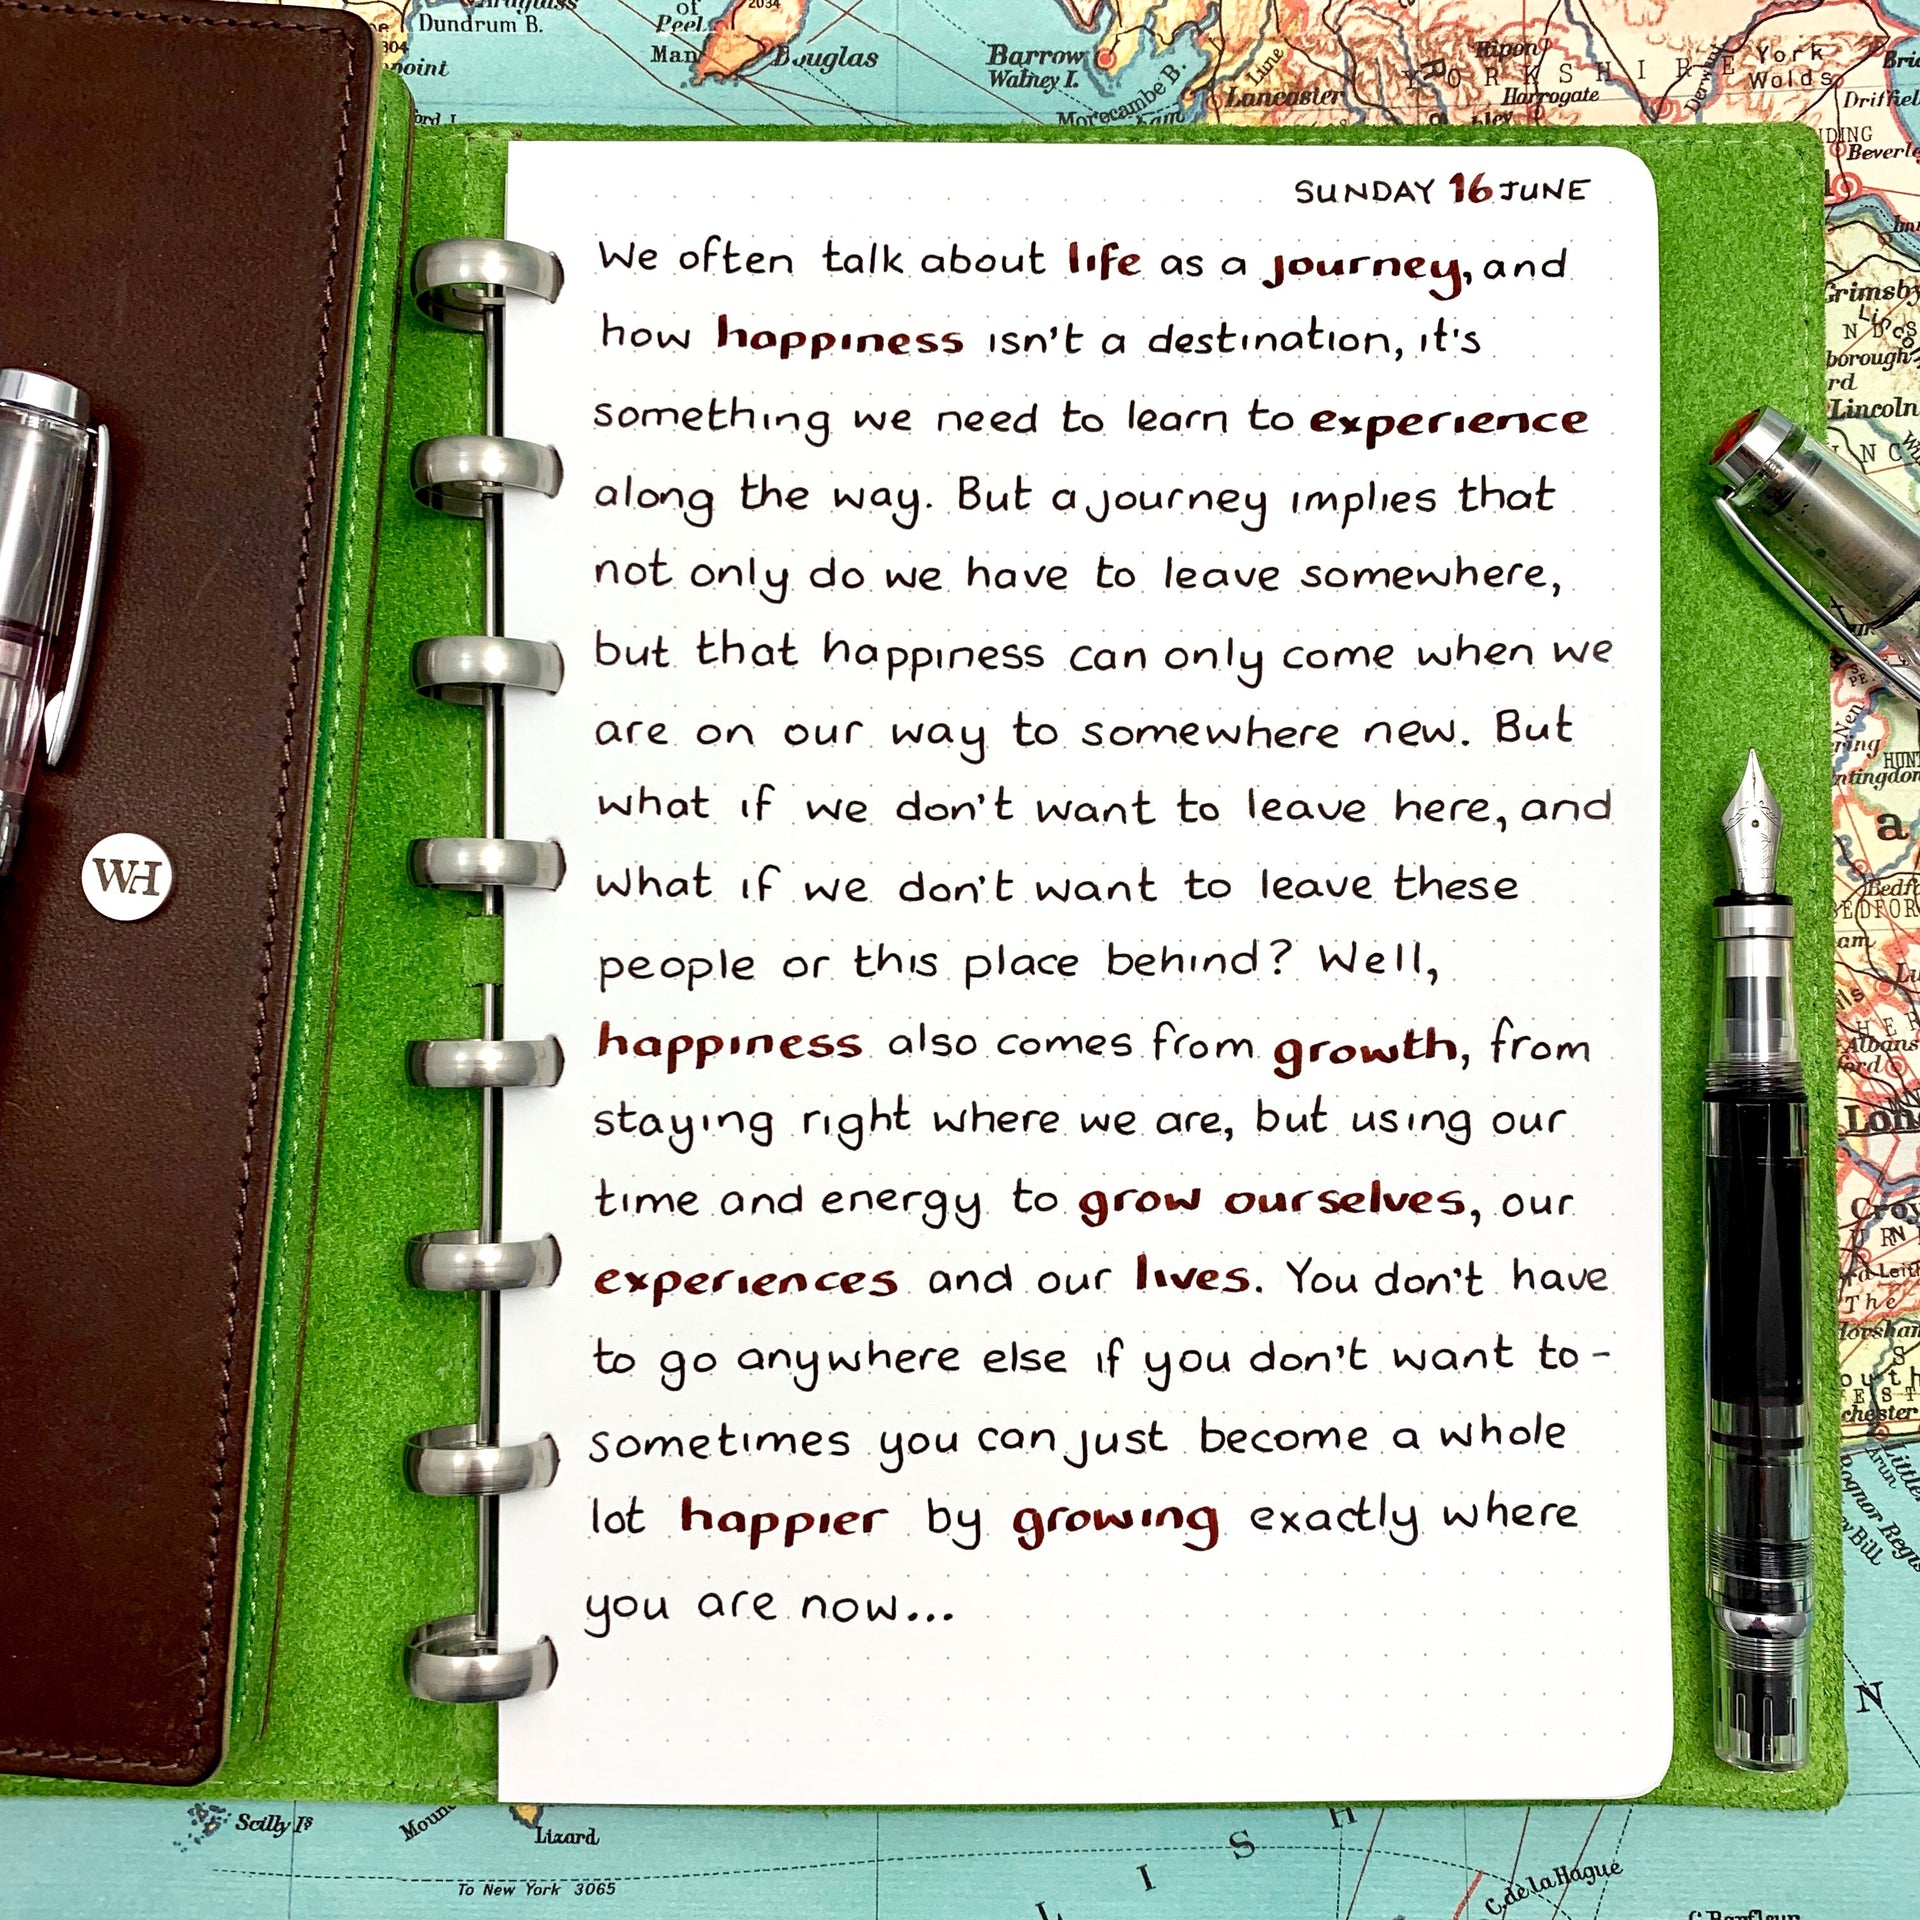 SUNDAY 16 JUNE
We often talk about life as a journey, and
how happiness isn't a destination, it's
something we need to learn to experience
along the way. But a journey implies that
not only do we have to leave somewhere,
but that happiness can only come when we
are on our way to somewhere new. But
what if we don't want to leave here, and
what if we don't want to leave these
people or this place behind? Well,
happiness also comes from growth, from
staying right where we are, but using our
time and energy to grow ourselves, our
experiences and our lives. You don't have
to go anywhere else if you don't want to -
sometimes you can just become a whole
lot happier by growing exactly where
you are now...
WH
Dundrum B.
of
Peel
Man
Douglas
2034
Barrow
Walney I.
Morecambe B.
Lune
Lancaster
Ripon
YORKSHIRE
Harrogate
Derwent
York
Wolds
Driffiel
Beverle
Grimsby
borough
Lincoln
HUN
ntingdon
a
Bedf
BEDFOR
Albans
Lon
Croy
Leith
The
chester
Bognor Regis
Bill
N
Scilly Is
Lizard
To New York 3065
L I S H
C. de la Hague